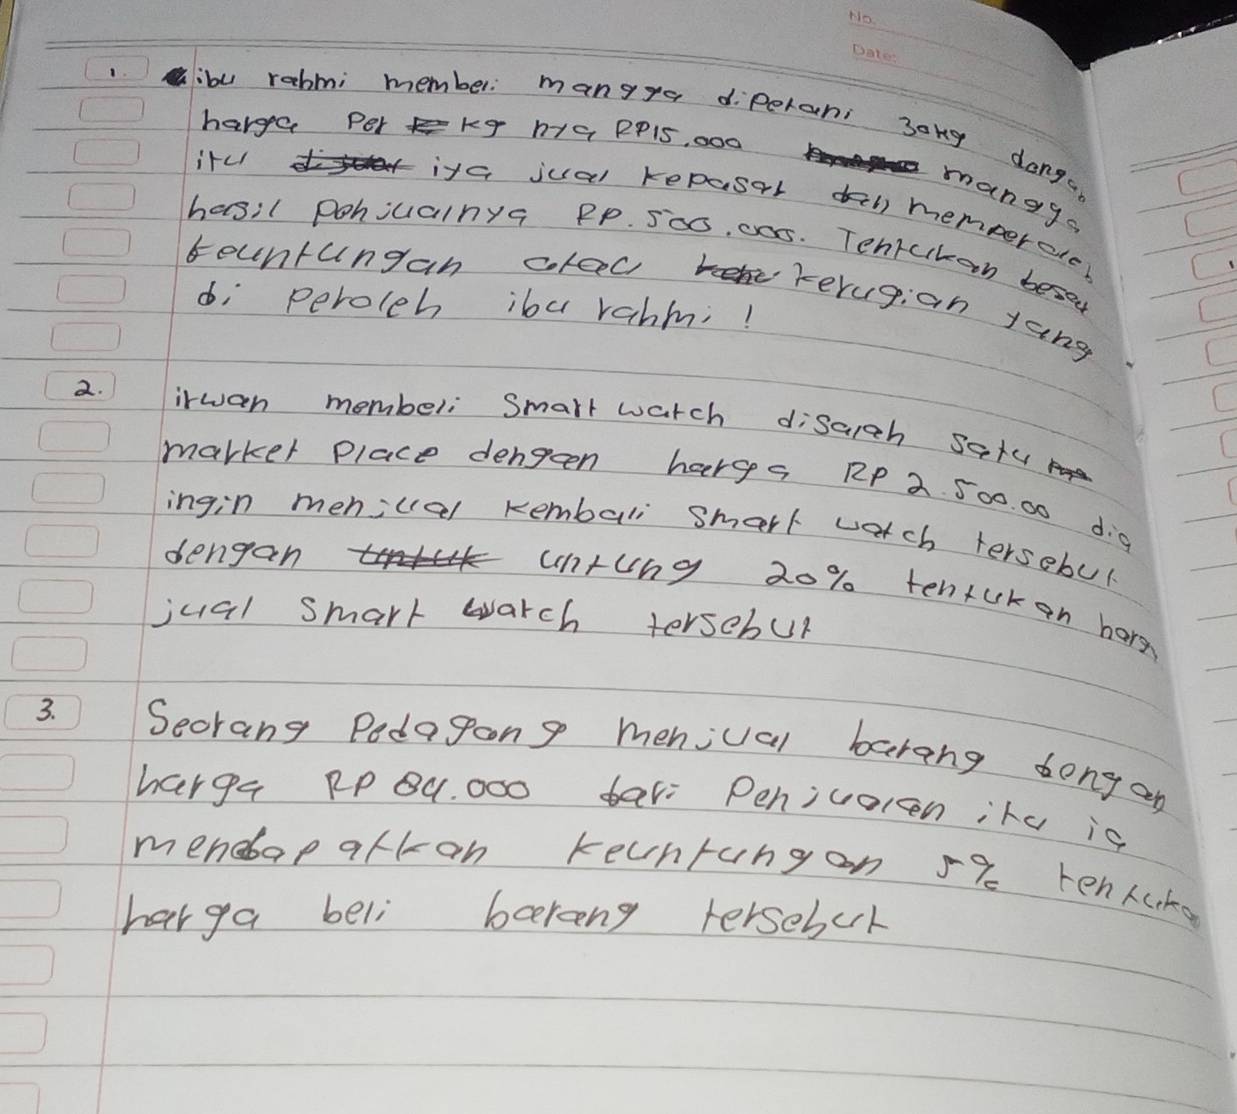 No.
Date:
1. ibu rahmi membeli mangga dipetani 30kg dengan
harga per kg nya RP15.000 mangga
itu iya jual kepasar dan memperoleh
hasil penjualnya RP. 500.000. Tentukan besar
keuntungan atau kerugian yang
di peroleh ibu rahmi!
2. irwan membeli smart watch disalah satu
market place dengan harga RP 2.500.00 dia
ingin menjual kembali smart watch tersebut
dengan untung 20% tentukan harga
jual smart watch tersebut
3. Seorang Pedagang menjual barang dengan
harga RP 84.000 dari Penjualan itu ia
mendapatkan keuntungan 5% tentukan
harga beli barang tersebut